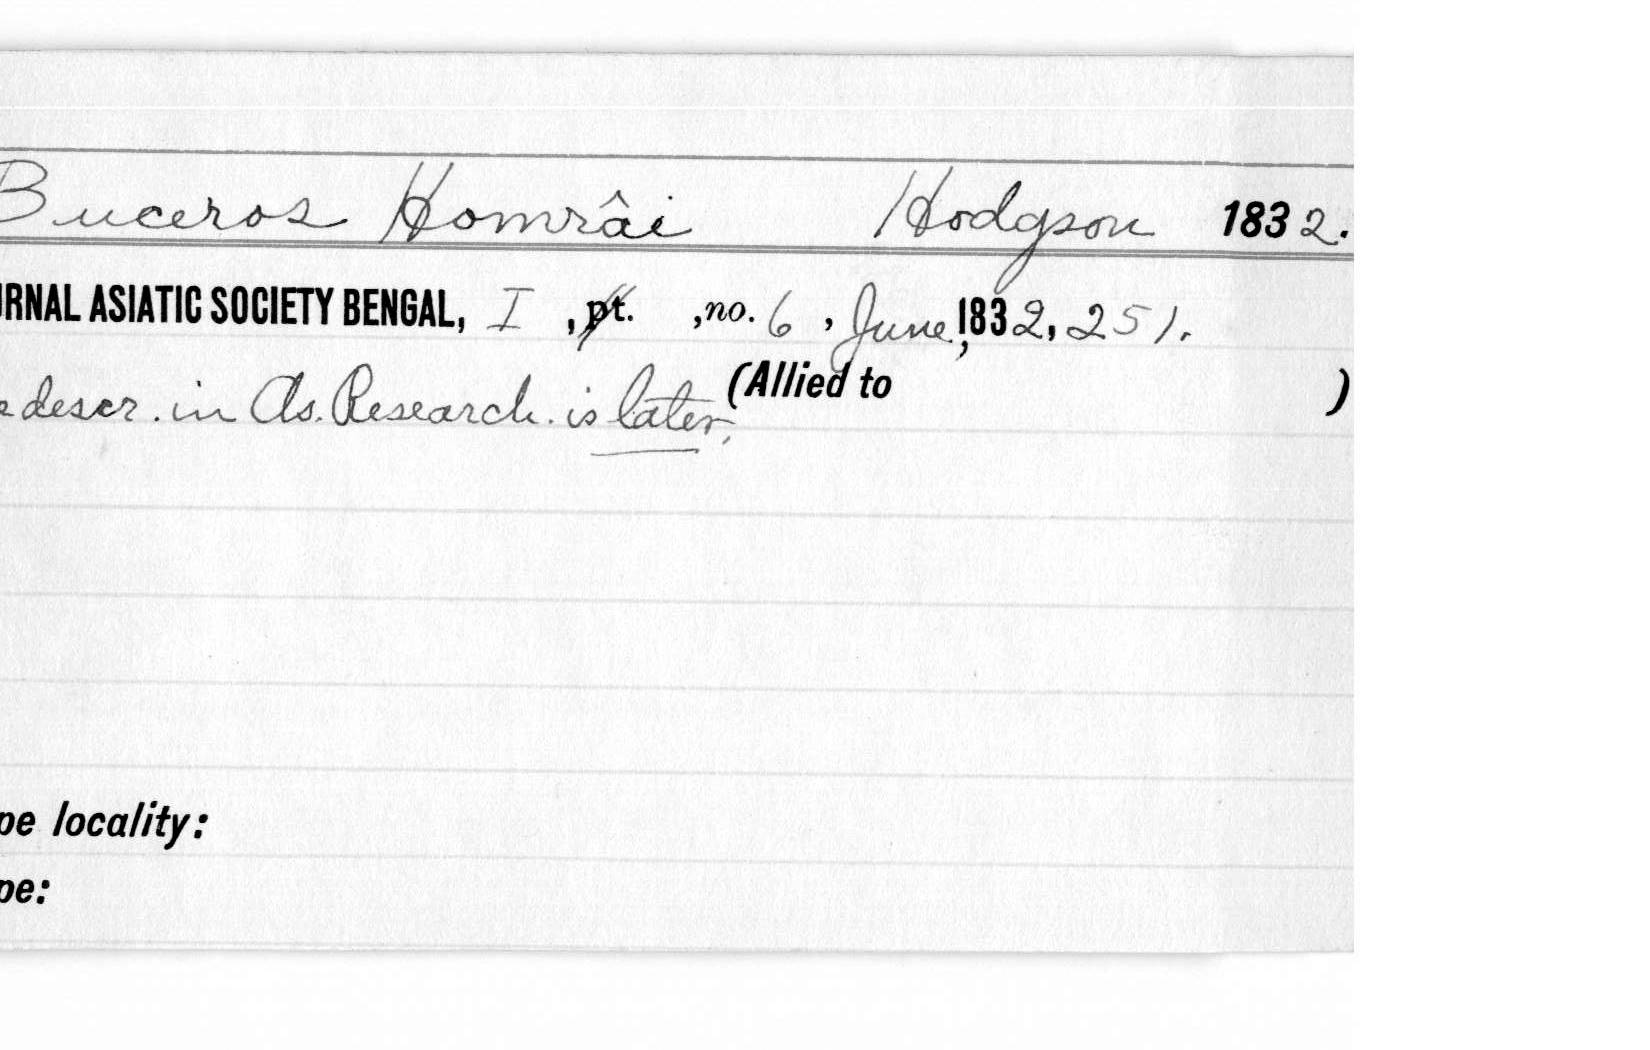 Buceros Homrâi Hodgson 1832.
RNAL ASIATIC SOCIETY BENGAL, I , pt. , no. 6 , June, 1832, 251.
(Allied to )
descr. in As. Research. is later.
pe locality:
pe: